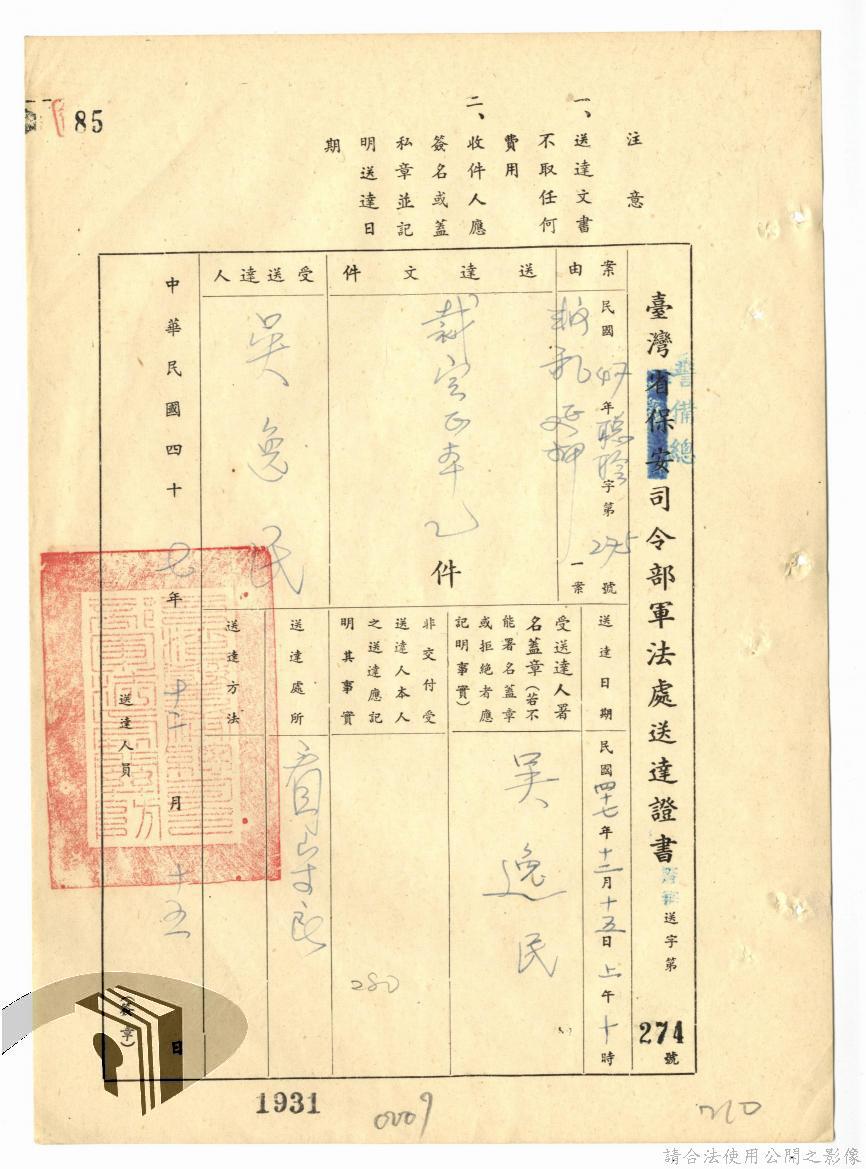 85
注意
一、送達文書
不取任何
費用
二、收件人應
簽名或蓋
私章並記
明送達日
期
臺灣省保安司令部軍法處送達證書
警備總
送字第274號
案由
民國47年聽字第275號
叛亂延押
一案
送達文件
裁定正本乙件
受送達人
吳逸民
送達日期
民國四十七年十二月十五日上午十時
受送達人署
名蓋章(若不
能署名蓋章
或拒絕者應
記明事實)
吳逸民
非交付受
送達人本人
之送達應記
明其事實
送達處所
送達方法
中華民國四十七年十二月十五日
送達人員
(簽章)
280
1931
0009
210
請合法使用公開之影像